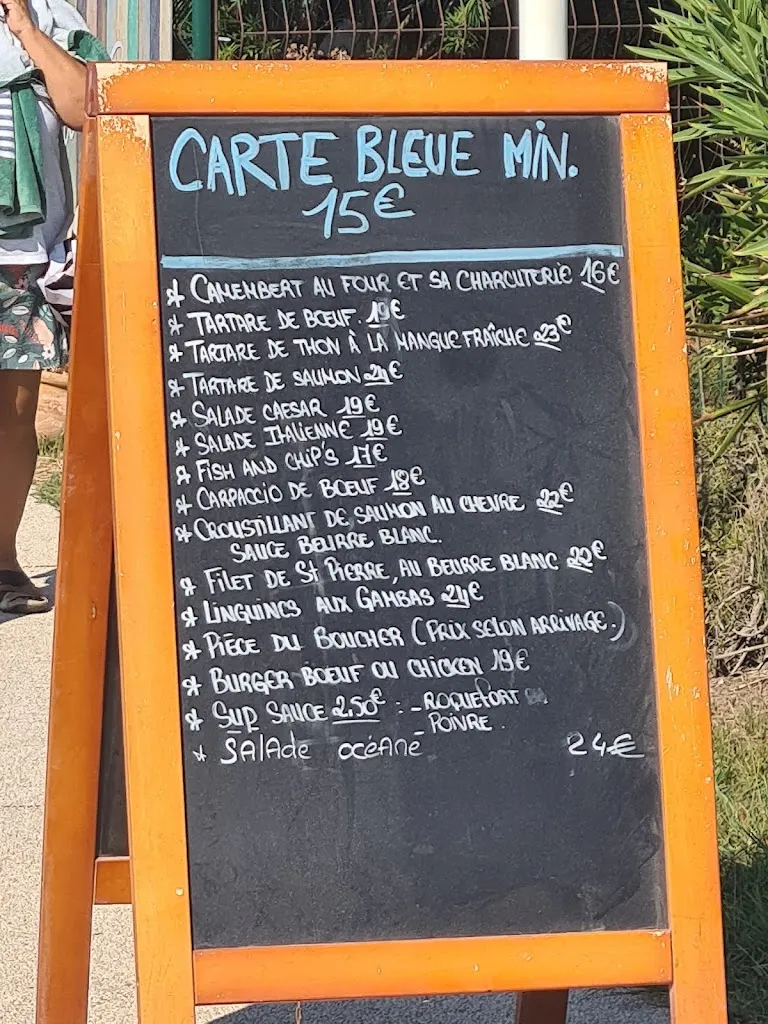 CARTE BLEUE MIN.
15€
* CAMEMBERT AU FOUR ET SA CHARCUTERIE 16€
* TARTARE DE BŒUF. 19€
* TARTARE DE THON À LA MANGUE FRAÎCHE 23€
* TARTARE DE SAUMON 24€
* SALADE CAESAR 19€
* SALADE ITALIENNE 19€
* FISH AND CHIP'S 17€
* CARPACCIO DE BOEUF 18€
* CROUSTILLANT DE SAUMON AU CHEVRE 22€
SAUCE BEURRE BLANC.
* FILET DE St PIERRE, AU BEURRE BLANC 22€
* LINGUINES AUX GAMBAS 24€
* PIÈCE DU BOUCHER (PRIX SELON ARRIVAGE.)
* BURGER BOEUF OU CHICKEN 19€
* SUP SAUCE 2,50€ : - ROQUEFORT
- POIVRE.
* SALAde océANe 24€